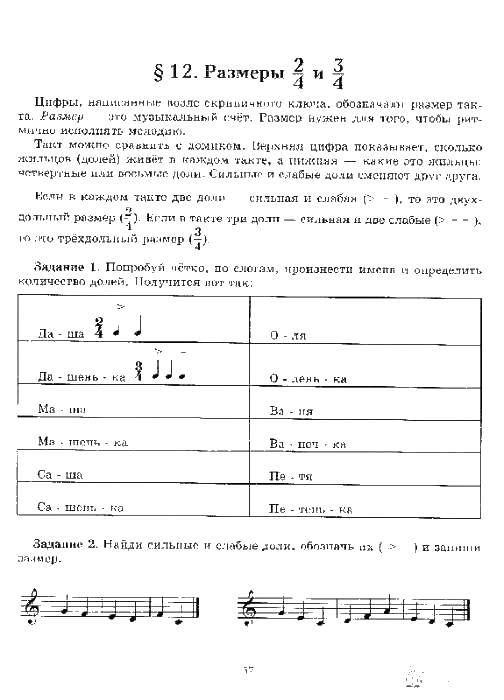 § 12. Размеры 2/4 и 3/4
Цифры, написанные возле скрипичного ключа, обозначают размер так-
та. Размер — это музыкальный счёт. Размер нужен для того, чтобы рит-
мично исполнять мелодию.
Такт можно сравнить с домиком. Верхняя цифра показывает, сколько
жильцов (долей) живёт в каждом такте, а нижняя — какие это жильцы:
четвертные или восьмые доли. Сильные и слабые доли сменяют друг друга.
Если в каждом такте две доли — сильная и слабая (> – ), то это двух-
дольный размер (2/4). Если в такте три доли — сильная и две слабые (> – – ),
то это трёхдольный размер (3/4).
Задание 1. Попробуй чётко, по слогам, произнести имена и определить
количество долей. Получится вот так:
Да - ша 2/4
О - ля
Да - шень - ка 3/4
О - лень - ка
Ма - ша
Ва - ня
Ма - шень - ка
Ва - неч - ка
Са - ша
Пе - тя
Са - шень - ка
Пе - тень - ка
Задание 2. Найди сильные и слабые доли, обозначь их ( > – ) и запиши
размер.